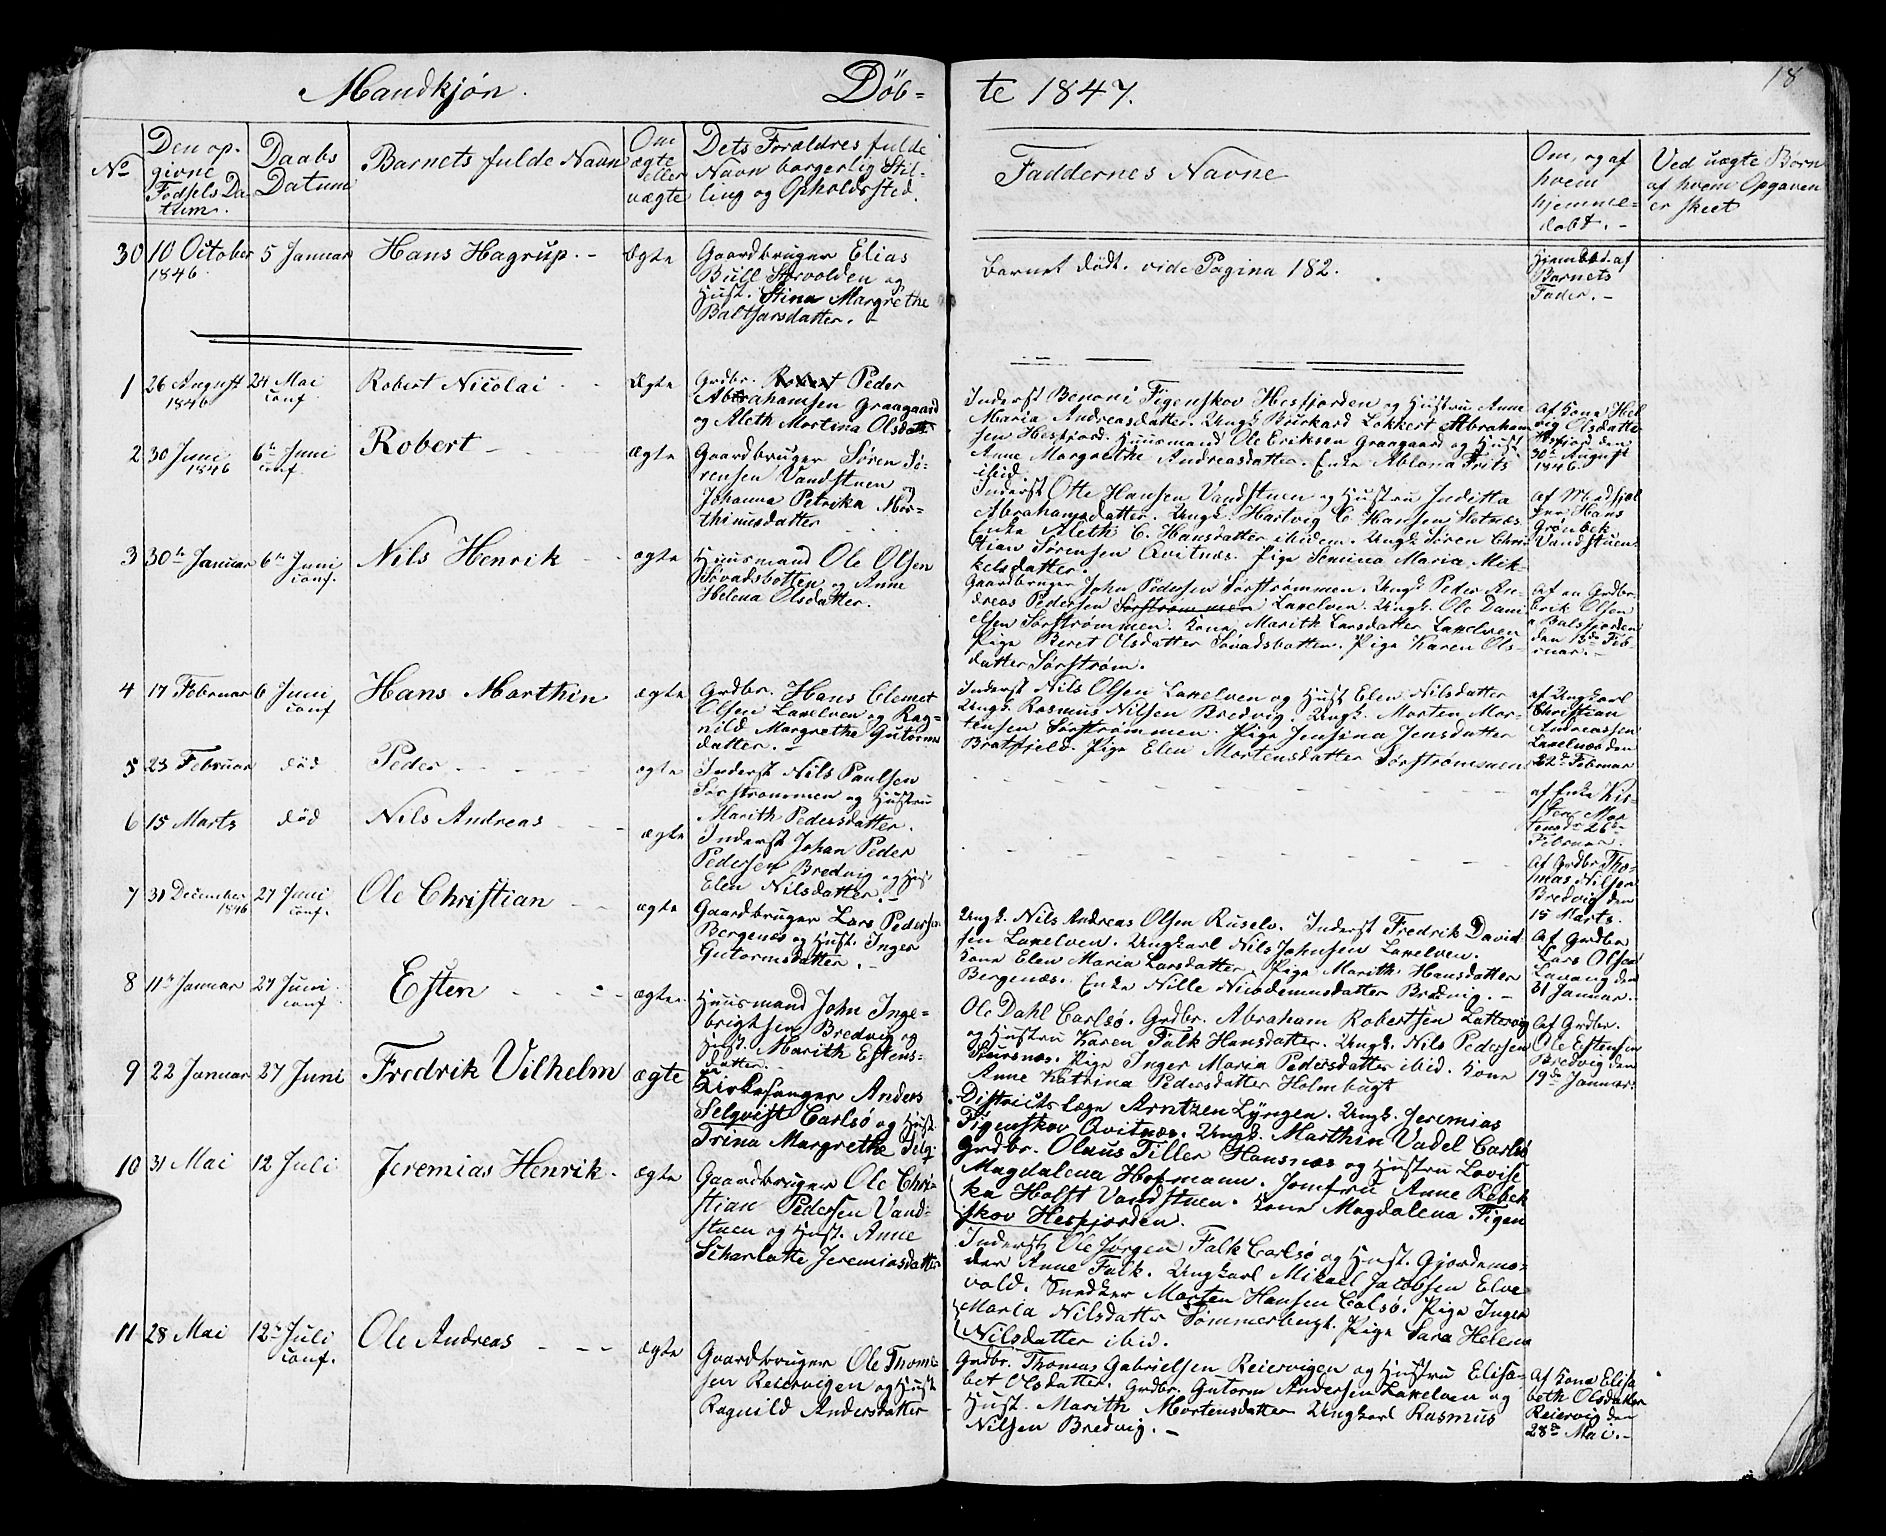 Mandkjøn. Döb= te 1847. 18
No
Den op-
givne
Fødsels Da-
tum.
Daabs
Datum
Barnets fulde Navn
Om
ægte
eller
uægte
Dets Forældres fulde
Navn borgerlig Stil-
ling og Opholdssted.
Faddernes Navne
Om, og af
hvem
hjemme=
døbt. -
Ved uægte Børn
af hvem Opgaven
er skeet
30 10 October 5 Januar Hans Hagrup. - Ægte
1846.
Gaardbruger Elias
Bull Storvolden og
Hust. Stina Margrethe
Balthsarsdatter. -
Barnet dødt. vide Pagina 182.
Hjemdøbt af
Barnets
Fader. -
1 26 August 24 Mai Robert Nicolai - - Ægte
1846 conf.
Grdbr. Robert Peder
Abrahamsen Graagaard
og Aleth Martina Olsdatt.
Inderst Benoni Figenskov Hesfjorden og Hustru Anne
Maria Andreasdatter. Ungk. Burkard Lokkert Abraham
sen Hesfjord. Huusmand Ole Eriksen Graagaard og Hust.
Anne Margrethe Andreasdatter. Enke Ablona Frits
ibid.
Af Kona Hed
vig Olsdatter
Hesfjord den
30te August
1846.
2 30 Juni 6te Juni Robert - - - ægte
1846 conf.
Gaardbruger Søren Sø-
rensen Vandstuen og
Johanna Petrika Mor-
thinusdatter
Inderst Otte Hansen Vandstuen og Hustru Juditta
Abrahamsdatter. Ungk. Hartvig C. Hansen Hetnæs.
Enke Aleth C. Hansdatter ibidem. Ungk. Søren Chri
stian Sørensen Qvitnæs. Pige Semina Maria Mik-
kelsdatter.
af Medhjæl
per Hans
Grønbek
Vandstuen.
3 30te Januar 6te Juni Nils Henrik - - ægte
conf.
Huusmand Ole Olsen
Søvadsbotten og Anne
Helena Olsdatter.
Gaardbruger John Pedersen Sørstrømmen. Ungk. Peder An-
dreas Pedersen Sørstrømmen Laxelven. Ungk. Ole Dani
elsen Sørstrømmen. Kona Marith Larsdatter Laxelven
Pige Beret Olsdatter Søvadsbotten. Pige Karen Ols-
datter Sørstrøm.
Af en Grdbr.
Erik Olsen
i Balsfjorden
den 13de Feb-
ruar. -
4 17 Februar 6 Juni Hans Marthin ægte
conf
Grdbr. Hans Clemet
Olsen Laxelven og Rag-
nild Margrethe Gutorms
datter. -
Inderst Nils Olsen Laxelven og Hust Elen Nilsdatter
Ungk. Rasmus Nilsen Bredvig. Ungk. Morten Mor-
tensen Sørstrømmen. Pige Jensina Jensdatter
Bratfjeld. Pige Elen Mortensdatter Sørstrømmen
af Ungkarl
Christian
Andreassen
Laxelnæs den
22de Februar
5 23 Februar død Peder - - - - ægte
Inderst Nils Paulsen
Sørstrømmen og Hustru
Marith Pedersdatter.
af Enke Kir-
sten Mor
tensdr 26de
Februar.
6 15 Marts død Nils Andreas - - ægte
Inderst Johan Peder
Pedersen Bredvig og Hust
Elen Nilsdatter. -
Af Grdbr. Tho-
mas Nilsen
Bredvig den
15 Marts.
7 31 December 27 Juni Ole Christian - - ægte
1846 conf.
Gaardbruger Lars Pedersen
Bergenæs og Hust. Inger
Gutormsdatter. -
Ungk. Nils Andreas Olsen Ruselv. Inderst Fredrik David
sen Laxelven. Ungkarl Nils Johnsen Laxelven.
Kona Elen Maria Larsdatter. Pige Marith Hansdatter
Bergenæs. Enke Nille Nicodemusdatter Bredvig. -
Af Grdbr
Lars Olsen
Lanæng den
31 Januar. -
8 11te Januar 27 Juni Esten - - - - ægte.
conf.
Huusmand John Inge-
brigtsen Bredvig og
Hust. Marith Estens-
datter. -
Ole Dahl Carlsø. Grdbr. Abraham Robertsen Lattervig
og Hustru Karen Falk Hansdatter. Ungk. Nils Pedersen
Stursnæs. Pige Inger Maria Pedersdatter ibid. Kone
Anne Katrina Pedersdatter Holmbugt
Af Grdbr.
Ole Estensen
Bredvig den
19de Januar.
9 22 Januar 27 Juni Fredrik Vilhelm ægte
Kirkesanger Anders
Selqvist Carlsø og Hust.
Trina Margrethe Selq.
Districtslæge Arntzen Lyngen. Ungk. Jeremias
Figenskov Qvitnæs. Ungk. Marthin Vadel Carlsø
Grdbr. Olaus Tiller Hansnæs og Hustru Lovise
Magdalena Hofmann. Jomfru Anne Rebek
ka Holst Vandstuen. Kona Magdalena Figen
skov Hesfjorden.
10 31 Mai 12 Juli Jeremias Henrik - ægte
Gaardbruger Ole Chri-
stian Pedersen Vand-
stuen og Hust. Anne
Scharlotte Jeremiasdatter
Inderst Ole Jørgen Falk Carlsø og Hust. Gjordemo-
der Anne Falk. Ungkarl Mikael Jacobsen Elve
vold. Snedker Morten Hansen Calsø. Pige Inger
Maria Nilsdatter Sømmerbugt. Pige Sara Helena
Nilsdatter ibid.
11 28 Mai 12te Juli Ole Andreas - - - ægte
conf.
Gaardbruger Ole Thom-
sen Reiervigen og Hust
Ragnild Andersdatter
Grdbr. Thomas Gabrielsen Reiervigen og Hustru Elisa-
bet Olsdatter. Grdbr. Gutorm Andersen Laxelven og
Hust. Marith Mortensdatter Ungkarl Rasmus
Nilsen Bredvig. -
Af Kona Elisa
beth Olsdatter
Reiervig den
28de Mai. -